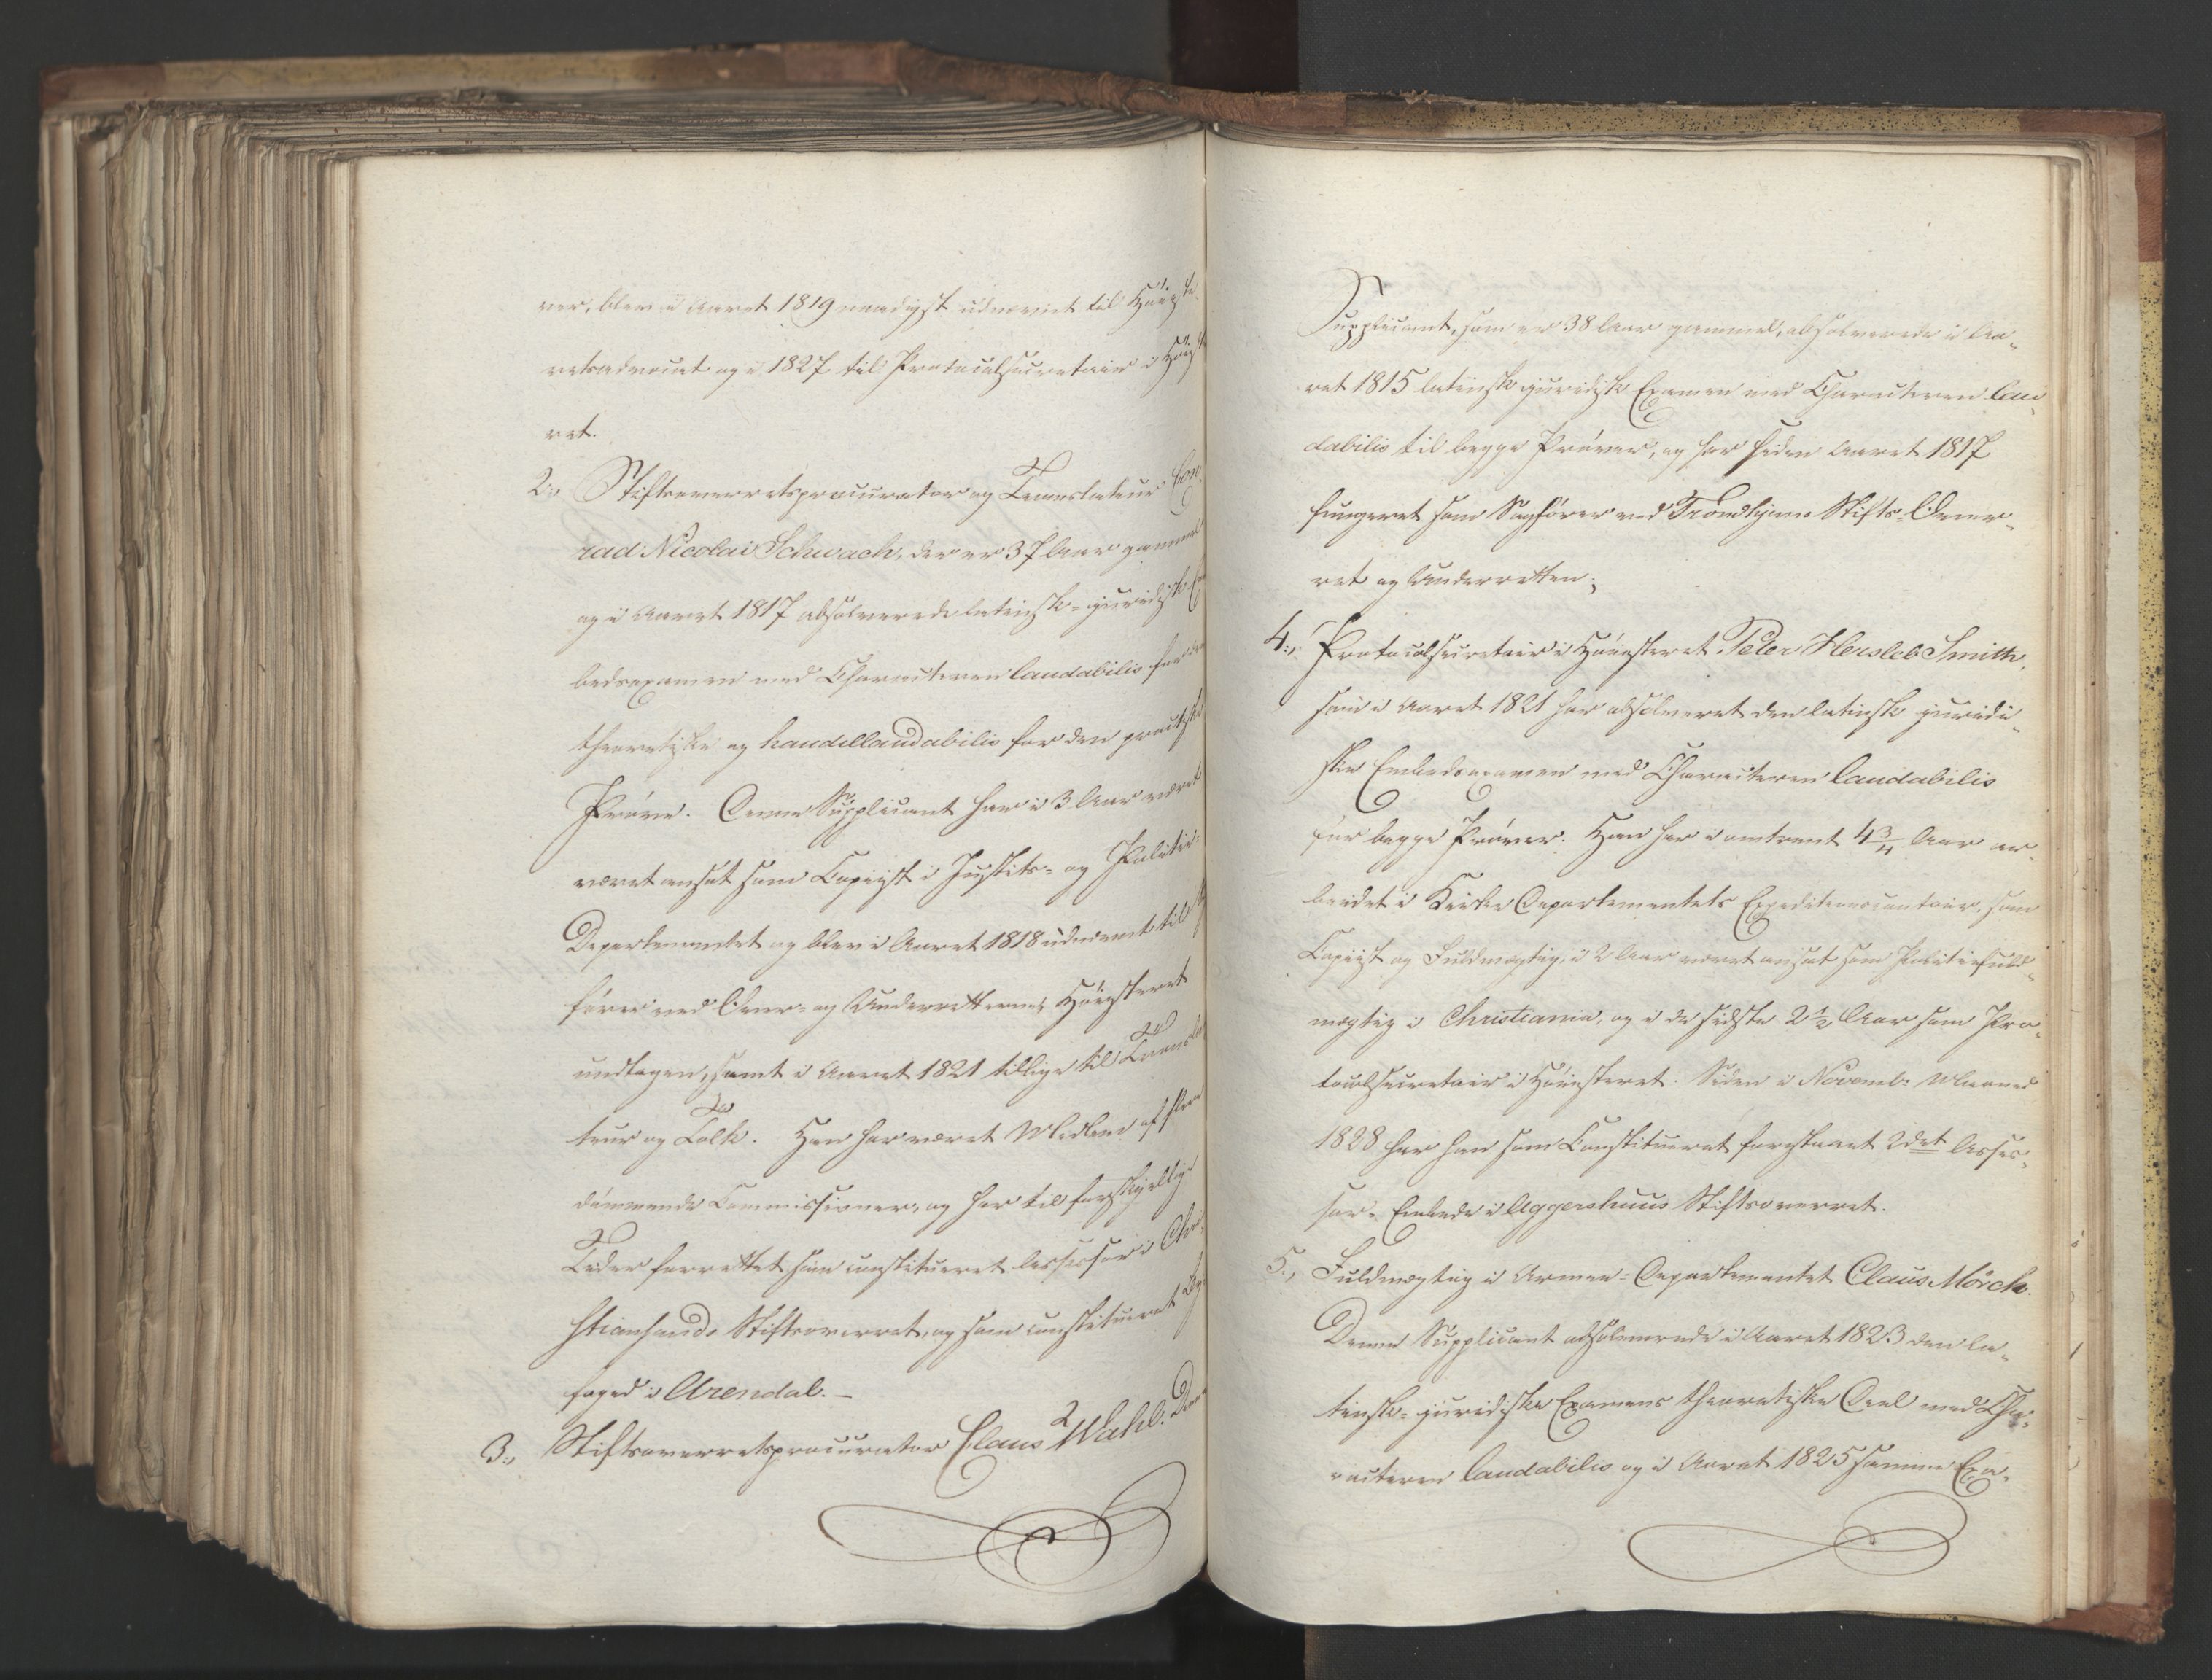 ver, blev i Aaret 1819 naadigst udnævnt til Høieste-
retsadvocat og i 1827 til Protocolsecretair i Høieste
ret.
2:, Stiftsoverretsprocurator og Translateur Con-
rad Nicolai Schwach, der er 37 Aar gammel
og i Aaret 1817 absolverede latinsk-juridisk Em
bedsexamen med Characteren laudabilis for den
theoretiske og haudillaudabilis for den practiske
Prøve. Denne Supplicant har i 3 Aar været
været ansat som Copiist i Justits- og Politie-
Departementet og blev i Aaret 1818 udnævnt til
fører ved Over- og Underretterne, Høiesteret
undtagen, samt i Aaret 1821 tillige til Transla
teur og Tolk. Han har været Medlem af flere
dømmende Commissioner, og har til forskjellige
Tider forrettet som constitueret Assessor i Chri-
stiansands Stiftsoverret, og som constitueret By
foged i Arendal.-
3:, Stiftsoverretsprocurator Claus Wahl. Denne
Supplicant, som er 38 Aar gammel, absolverede i Aa-
ret 1815 latinsk juridisk Examen med Characteren lau
dabilis til begge Prøver, og har siden Aaret 1817
fungeret som Sagfører ved Trondhjems Stifts-Over-
ret og Underretten;
4:, Protocolsecretair i Høiesteret Peter Hersleb Smith,
som i Aaret 1821 har absolveret den latinsk juridi-
ske Embedsexamen med Characteren laudabilis
for begge Prøver. Han har i omtrent 4 3/4 Aar ar-
beidet i Kirke Departementets Expeditionscontoir, som
Copiist og Fuldmægtig, i 2 Aar været ansat som Politiefuld-
mægtig i Christiania, og i de sidste 2 1/2 Aar som Pro-
tocolsecretair i Høiesteret. Siden i Novembr Maaned
1828 har han som Constitueret forestaaet 2det Asses-
sor- Embede i Aggershuus Stiftsoverret.
5:, Fuldmægtig i Armee-Departementet Claus Mörch.
Denne Supplicant absolverede i Aaret 1823 den la-
tinsk-juridiske Examens theoretiske Deel med Cha-
racteren laudabilis og i Aaret 1825 samme Exa-